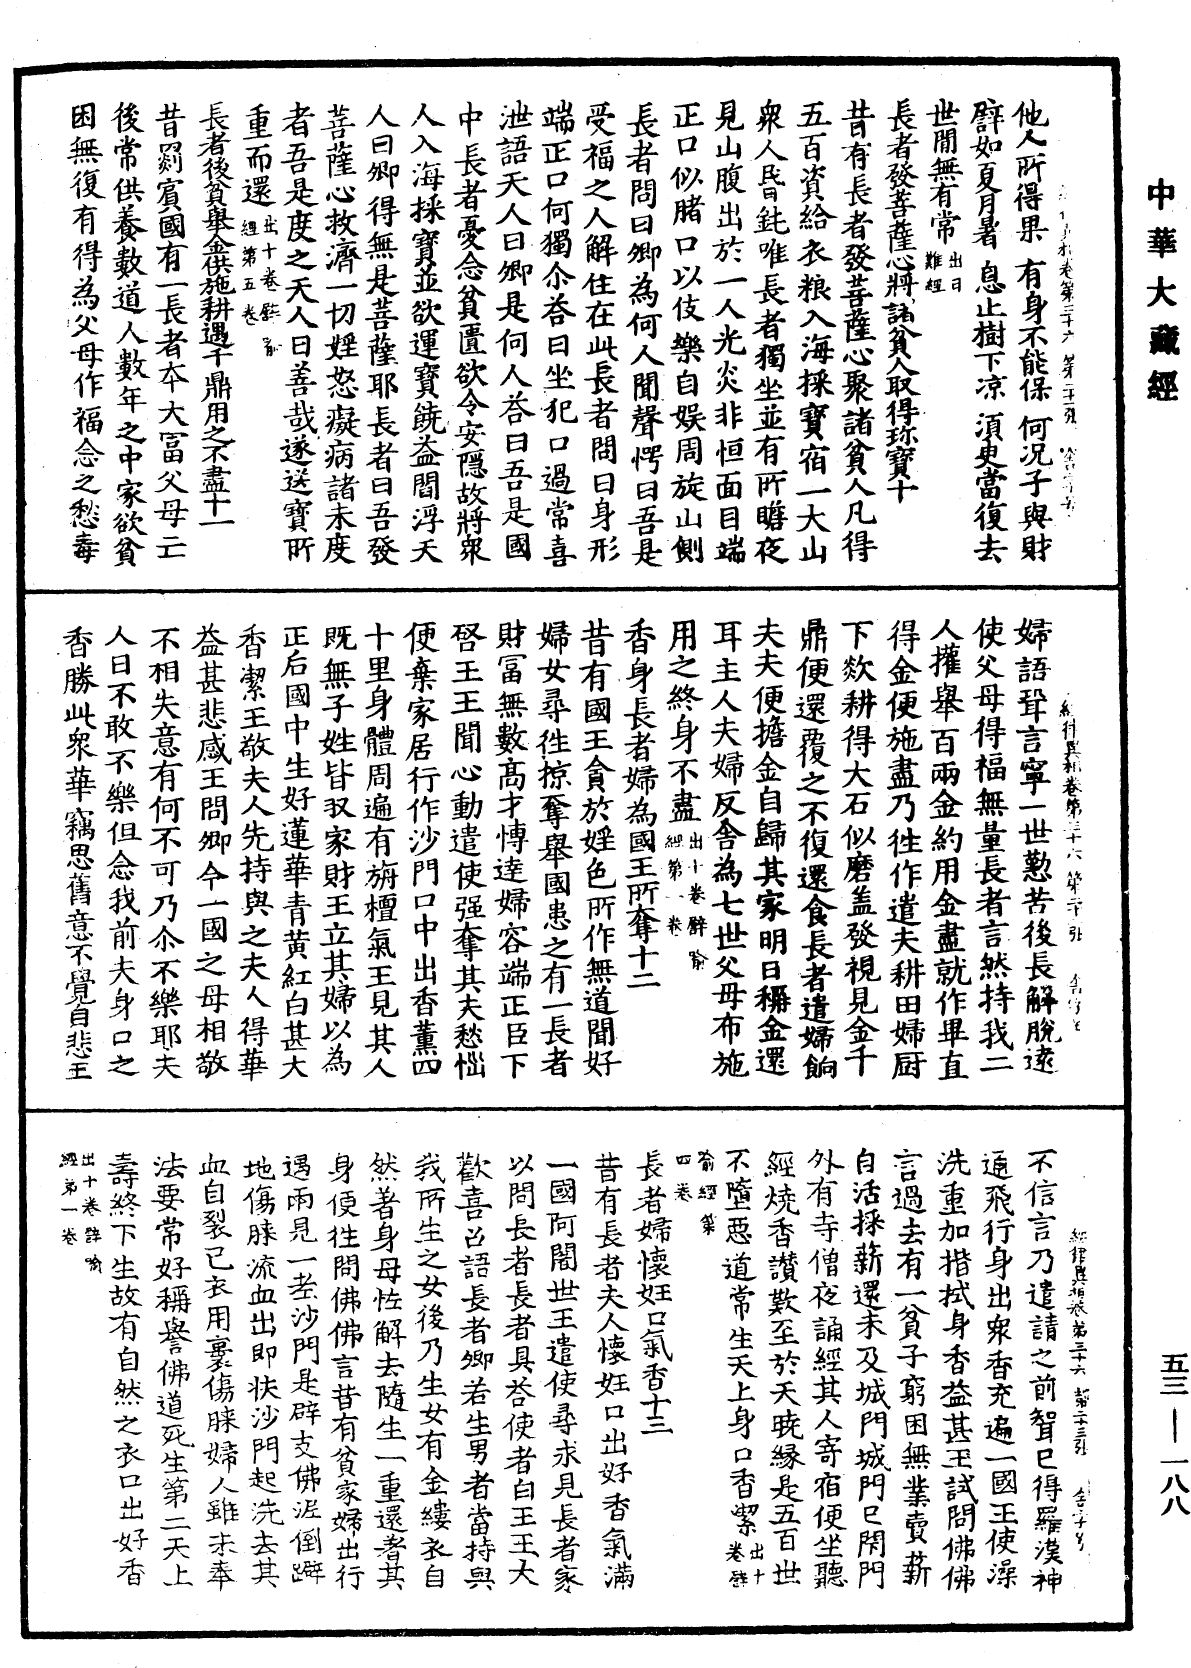 中華大藏經
他人所得果　有身不能保　何況子與財
譬如夏月暑　息止樹下凉　須臾當復去
世間無有常出曰難經
長者發菩薩心將諸貧人取得珎寶十
昔有長者發菩薩心聚諸貧人凡得
五百資給衣粮入海採寶宿一大山
衆人昬鈍唯長者獨坐並有所瞻夜
見山腹出於一人光炎非恒面目端
正口似豬口以伎樂自娛周旋山側
長者問曰卿為何人聞聲愕曰吾是
受福之人解住在此長者問曰身形
端正口何獨尒荅曰坐犯口過常喜
泄語天人曰卿是何人荅曰吾是國
中長者憂念貧匱欲令安隱故將衆
人入海採寶並欲運寶饒益閻浮天
人曰卿得無是菩薩耶長者曰吾發
菩薩心救濟一切婬怒癡病諸未度
者吾是度之天人曰善哉遂送寶所
重而還出十卷譬喻經第五卷
長者後貧舉金供施耕遇千鼎用之不盡十一
昔罽賓國有一長者夲大富父母亡
後常供養數道人數年之中家欲貧
困無復有得為父母作福念之愁毒
經律異相卷第三十六　第二十張
婦語聟言寧一世懃苦後長解脫遠
使父母得福無量長者言然持我二
人攉舉百兩金約用金盡就作畢直
得金便施盡乃徃作遣夫耕田婦厨
下欻耕得大石似磨盖發視見金千
鼎便還覆之不復還食長者遣婦餉
夫夫便擔金自歸其家明日稱金還
耳主人夫婦反舍為七世父母布施
用之終身不盡出十卷譬喻經第一卷
香身長者婦為國王所奪十二
昔有國王貪於婬色所作無道聞好
婦女尋徃掠奪舉國患之有一長者
財冨無數髙才愽達婦容端正臣下
啓王王聞心動遣使强奪其夫愁惱
便棄家居行作沙門口中出香薰四
十里身體周遍有旃檀氣王見其人
既無子姓皆収家財王立其婦以為
正后國中生好蓮華青黄紅白甚大
香潔王敬夫人先持與之夫人得華
益甚悲感王問卿今一國之母相敬
不相失意有何不可乃尒不樂耶夫
人曰不敢不樂但念我前夫身口之
香勝此衆華竊思舊意不覺自悲王
經律異相卷第三十六　第二十三張
不信言乃遣請之前聟已得羅漢神
通飛行身出衆香充遍一國王使澡
洗重加揩拭身香益甚王試問佛佛
言過去有一貧子窮困無業賣薪
自活採薪還未及城門城門已閇門
外有寺僧夜誦經其人寄宿便坐聽
經燒香讃歎至於天曉縁是五百世
不墮惡道常生天上身口香潔出十卷譬
喻經第四卷
長者婦懷妊口氣香十三
昔有長者夫人懷妊口出好香氣滿
一國阿闍世王遣使尋求見長者家
以問長者長者具荅使者白王王大
歡喜召語長者卿若生男者當持與
我所生之女後乃生女有金縷衣自
然著身母恠解去隨生一重還著其
身便徃問佛佛言昔有貧家婦出行
遇雨見一老沙門是辟支佛泥倒躃
地傷膝流血出即扶沙門起洗去其
血自裂已衣用裹傷膝婦人雖未奉
法要常好稱譽佛道死生第二天上
壽終下生故有自然之衣口出好香
出十卷譬喻經第一卷
五三—一八八